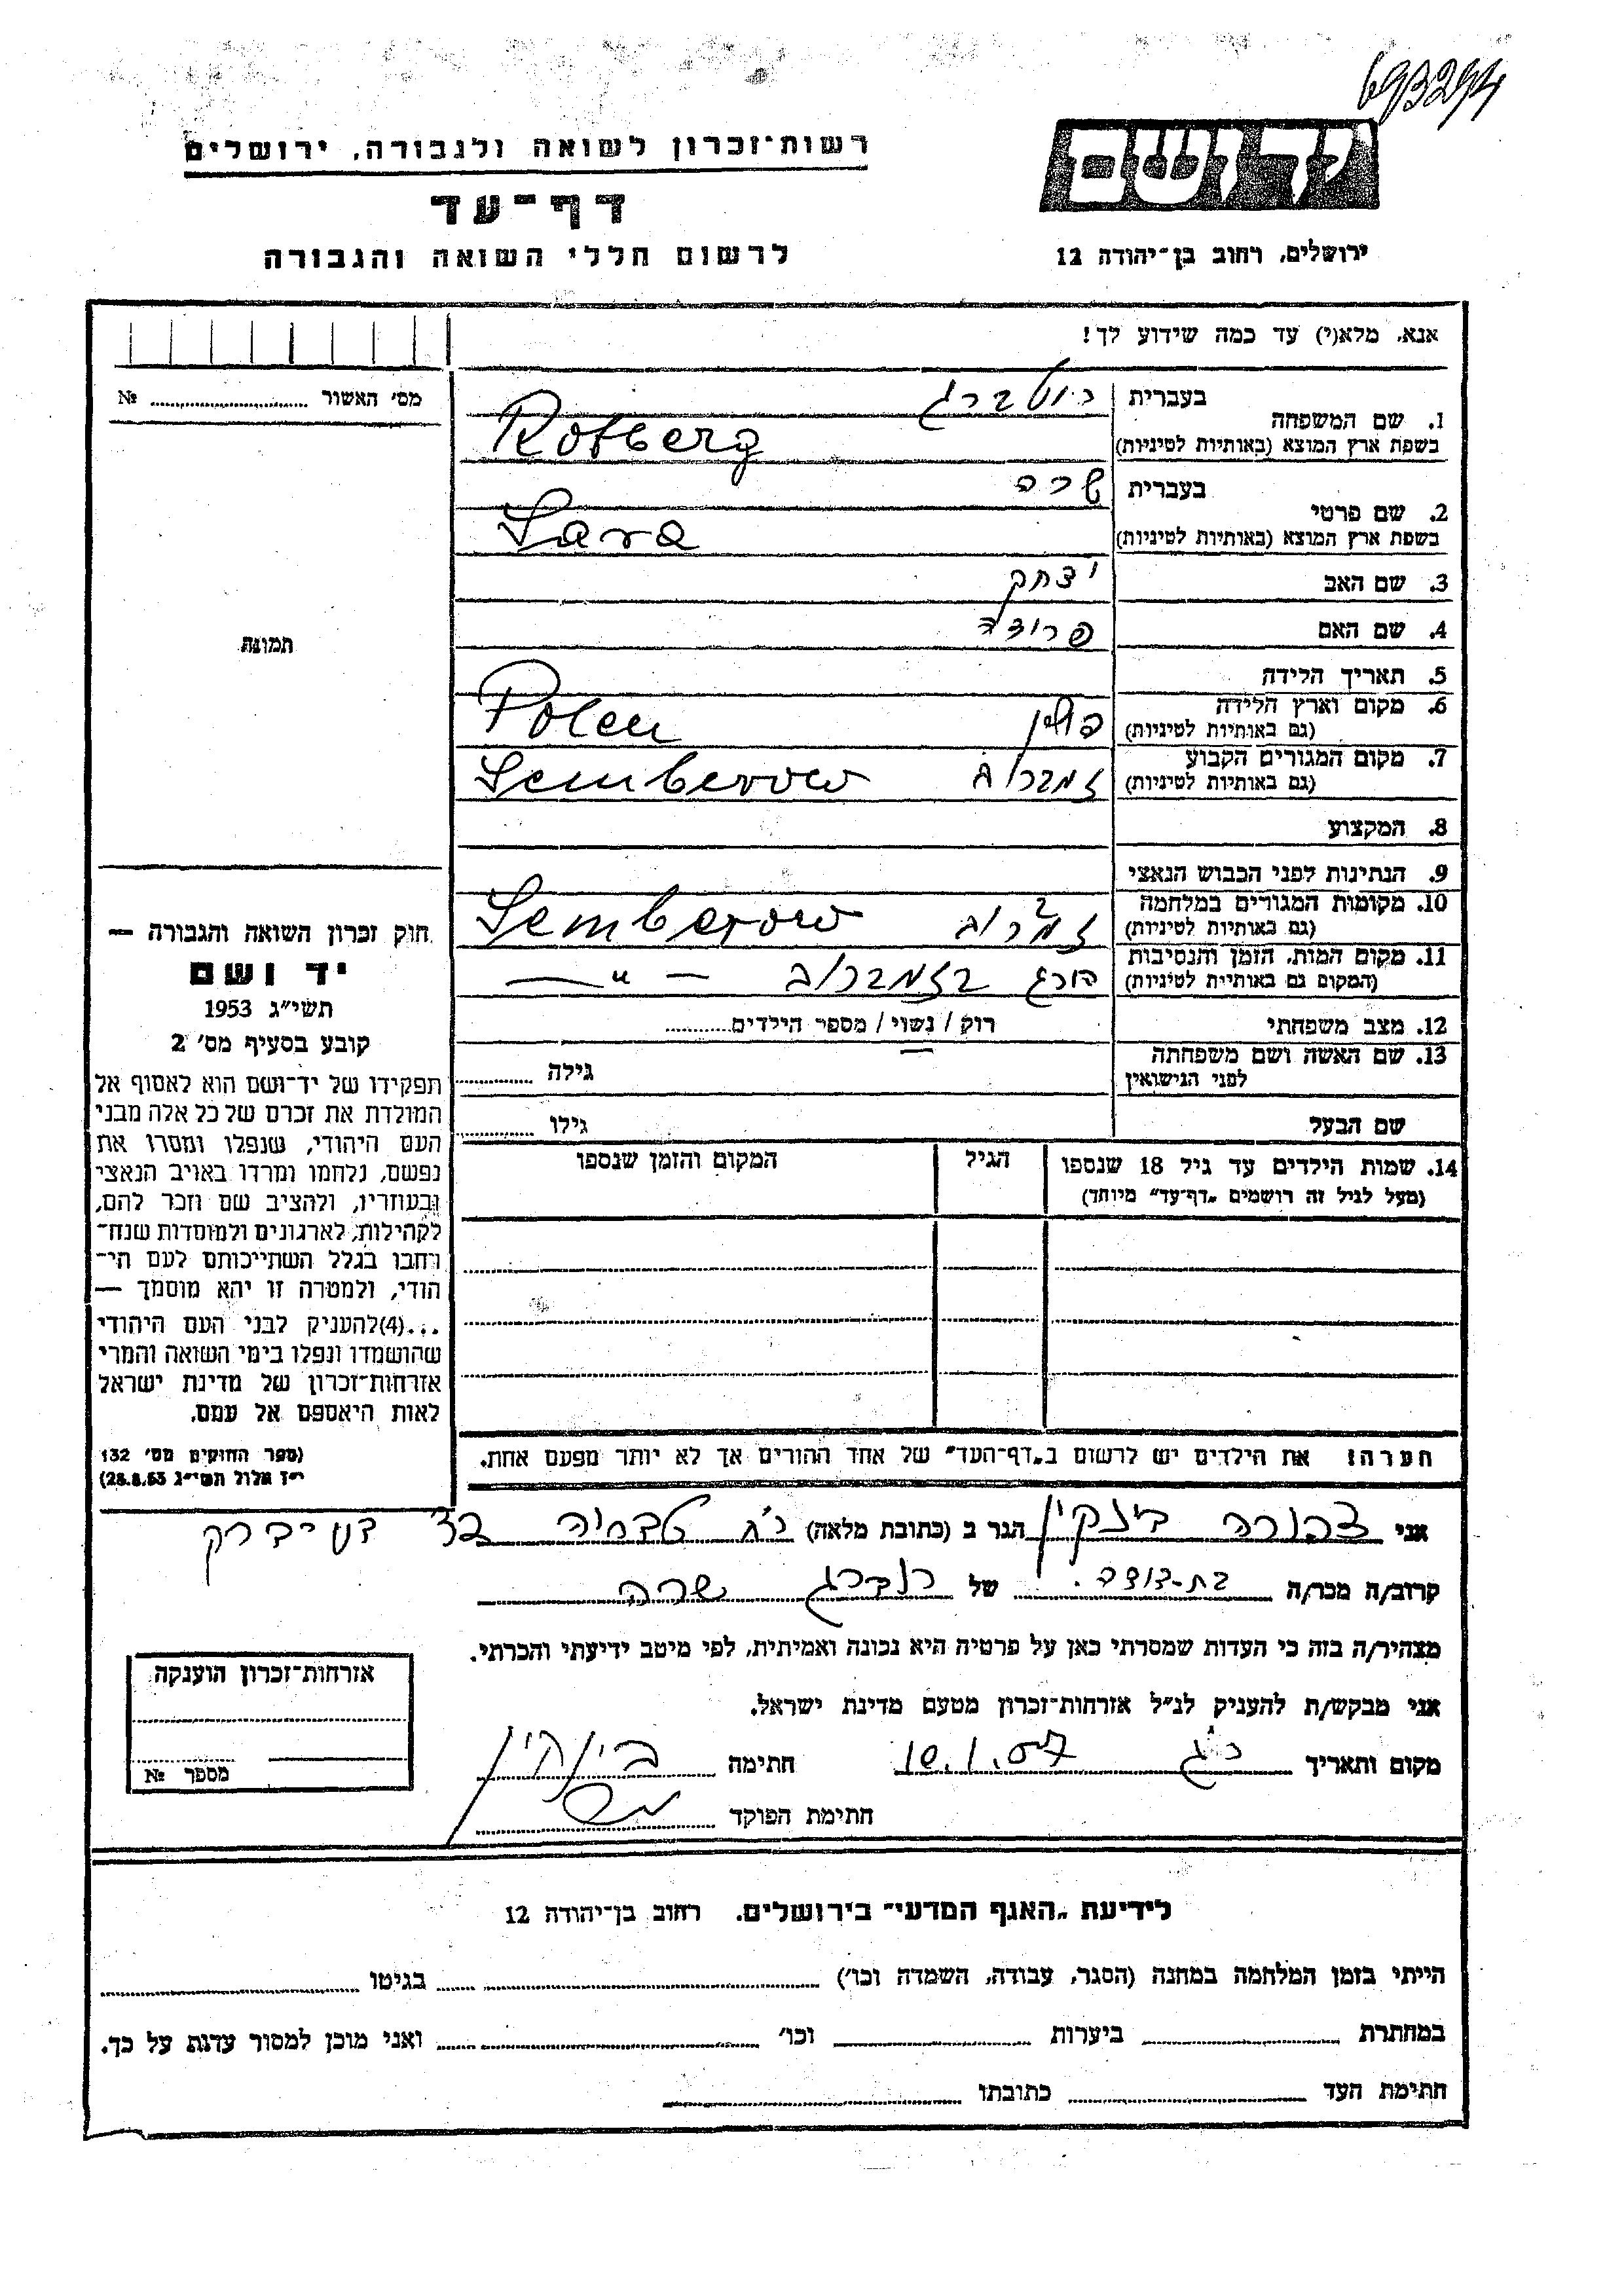 693294
רשות־זכרון לשואה ולגבורה, ירושלים
יד ושם
דף־עד
לרשום חללי השואה והגבורה
ירושלים, רחוב בן־יהודה 12
אנא, מלא(י) עד כמה שידוע לך!
מס׳ האשור № ........
בעברית רוטברג
1. שם המשפחה
בשפת ארץ המוצא (באותיות לטיניות) Rotberg
בעברית שרה
2. שם פרטי
בשפת ארץ המוצא (באותיות לטיניות) Sara
3. שם האב יצחק
4. שם האם פרומה
תמונה
5. תאריך הלידה
6. מקום וארץ הלידה פולין Polen
(גם באותיות לטיניות)
7. מקום המגורים הקבוע זמברוב Semberow
(גם באותיות לטיניות)
8. המקצוע
9. הנתינות לפני הכבוש הנאצי
10. מקומות המגורים במלחמה זמברוב Semberow
(גם באותיות לטיניות)
11. מקום המות, הזמן והנסיבות הורג בזמברוב — " —
(המקום גם באותיית לטיניות)
12. מצב משפחתי רוק / נשוי / מספר הילדים........
13. שם האשה ושם משפחתה
לפני הנישואין גילה ........
שם הבעל גילו ........
14. שמות הילדים עד גיל 18 שנספו הגיל המקום והזמן שנספו
(מעל לגיל זה רושמים „דף־עד" מיוחד)
חוק זכרון השואה והגבורה —
יד ושם
תשי״ג 1953
קובע בסעיף מס׳ 2
תפקידו של יד־ושם הוא לאסוף אל
המולדת את זכרם של כל אלה מבני
העם היהודי, שנפלו ומסרו את
נפשם, נלחמו ומרדו באויב הנאצי
ובעוזריו, ולהציב שם וזכר להם,
לקהילות, לארגונים ולמוסדות שנח־
רחבו בגלל השתייכותם לעם הי־
הודי, ולמטרה זו יהא מוסמך —
...(4)להעניק לבני העם היהודי
שהושמדו ונפלו בימי השואה והמרי
אזרחות־זכרון של מדינת ישראל
לאות היאספם אל עמם.
(ספר החוקים מס׳ 132
י״ז אלול תשי״ג 28.8.53)
חערה! את הילדים יש לרשום ב„דף־העד" של אחד ההורים אך לא יותר מפעם אחת.
אני צפורה בינקין הגר ב (כתובת מלאה) ר״ג טבריה
קרוב/ה מכר/ה בת-דודה של רוטברג שרה
מצהיר/ה בזה כי העדות שמסרתי כאן על פרטיה היא נכונה ואמיתית, לפי מיטב ידיעתי והכרתי.
אני מבקש/ת להעניק לנ״ל אזרחות־זכרון מטעם מדינת ישראל.
מקום ותאריך ר״ג 10.1.57 חתימה בינקין
חתימת הפוקד
אזרחות־זכרון הוענקה
מספר №
לידיעת „האגף המדעי" בירושלים, רחוב בן־יהודה 12
הייתי בזמן המלחמה במחנה (הסגר, עבודה, השמדה וכו׳) ........ בגיטו ........
במחתרת ........ ביערות ........ וכו׳ ........ ואני מוכן למסור עדות על כך.
חתימת העד ........ כתובתו ........